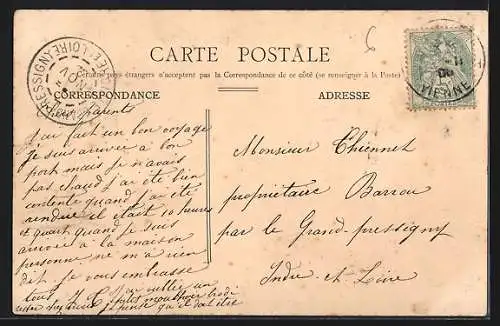 6
CARTE POSTALE
Certains pays étrangers n'acceptent pas la Correspondance de ce côté (se renseigner à la Poste)
CORRESPONDANCE
ADRESSE
VIENNE
Chers parents
J'ai fait un bon voyage
je suis arriver à bon
port mais je n'avais
pas chaud j'ai été bien
contente quand j'ai été
rendue il était 10 heures
et quart quand je suis
arrivée à la maison
personne ne m'a rien
dit. Je vous embrasse
tous
J'ai oublier un
mouchoir brodé
je pense qu'il doit être
Monsieur Thiennet
propriétaire Barrou
par le Grand-pressigny
Indre-et-Loire